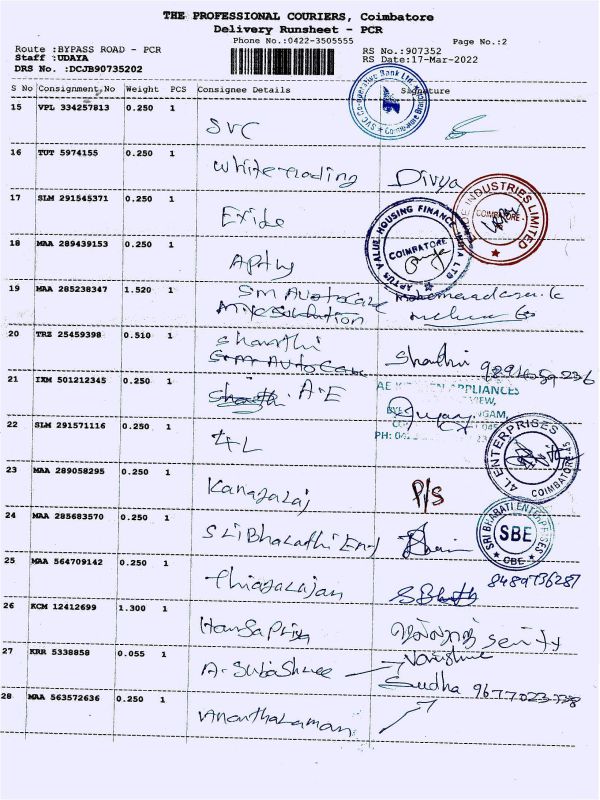 THE PROFESSIONAL COURIERS, Coimbatore
Delivery Runsheet - PCR
Phone No.:0422-3505555
Page No.:2
Route :BYPASS ROAD - PCR
RS No.:907352
Staff :UDAYA
RS Date:17-Mar-2022
DRS No. :DCJB90735202
S No Consignment No Weight PCS Consignee Details Signature
15 VPL 334257813 0.250 1
SVC
SVC Co-operative Bank Ltd. Coimbatore Branch
16 TUT 5974155 0.250 1
White trading Divya
17 SLM 291545371 0.250 1
Exide
INDUSTRIES LIMITED
COIMBATORE
18 MAA 289439153 0.250 1
Aptus
APTUS VALUE HOUSING FINANCE INDIA LTD
COIMBATORE
19 MAA 285238347 1.520 1
SM Autocare
20 TRZ 25459398 0.510 1
Sharthi
SM Auto Care
Sharthi
21 IXM 501212345 0.250 1
A.E
AE KITCHEN APPLIANCES
22 SLM 291571116 0.250 1
4L
4L ENTERPRISES
COIMBATORE-45
23 MAA 289058295 0.250 1
Kanagaraj P/S
24 MAA 285683570 0.250 1
Sri Bharathi Ent
SRI BHARATI ENTERPRISES
SBE
CBE
25 MAA 564709142 0.250 1
8489736287
Thiagarajan
26 KCM 12412699 1.300 1
Hansapriy
27 KRR 5338858 0.055 1
A. Subashree
Sudha 9677023328
28 MAA 563572636 0.250 1
Anantharaman